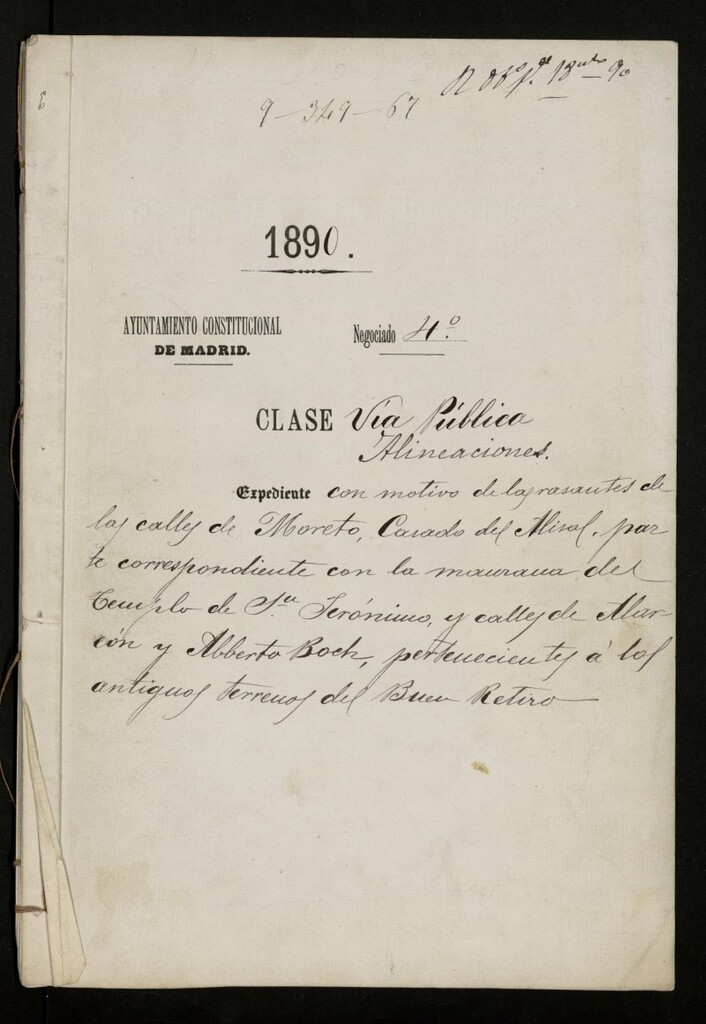 9-349-67
1890.
AYUNTAMIENTO CONSTITUCIONAL
DE MADRID.
Negociado 4.º
CLASE Vía Pública
Alineaciones.
Expediente con motivo de las rasantes de
las calles de Moreto, Casado del Alisal, par
te correspondiente con la manzana del
Templo de Sn Jerónimo, y calles de Alar-
cón y Abberto Boch, pertenecientes á los
antiguos terrenos del Buen Retiro